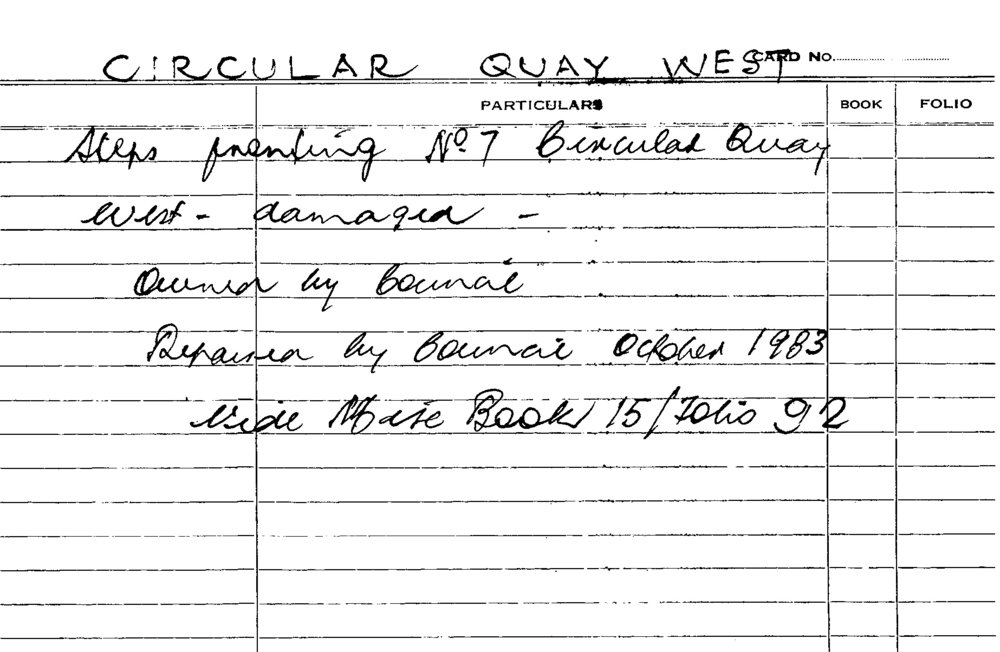 CIRCULAR QUAY WEST CARD No.
PARTICULARS BOOK FOLIO
Steps fronting No 7 Circular Quay
West - damaged -
Owned by Council
Repaired by Council October 1983
Vide Book 15/Folio 92